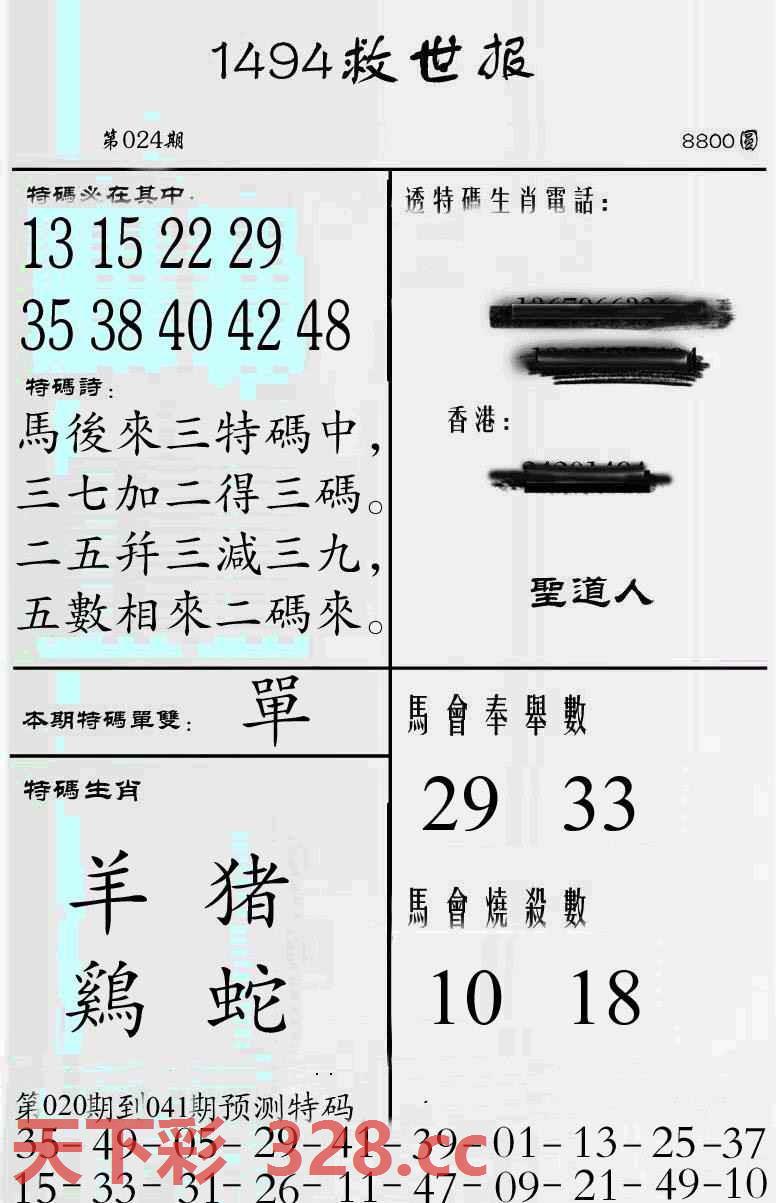 1494救世报
第024期
8800圓
特碼必在其中：
13 15 22 29
35 38 40 42 48
特碼詩：
馬後來三特碼中，
三七加二得三碼。
二五幷三減三九，
五數相來二碼來。
透特碼生肖電話：
香港：
聖道人
本期特碼單雙：單
特碼生肖
羊 猪
鷄 蛇
馬會奉舉數
29 33
馬會燒殺數
10 18
第020期到041期预测特码
35-49-05-29-41-39-01-13-25-37
15-33-31-26-11-47-09-21-49-10
天下彩 328.cc